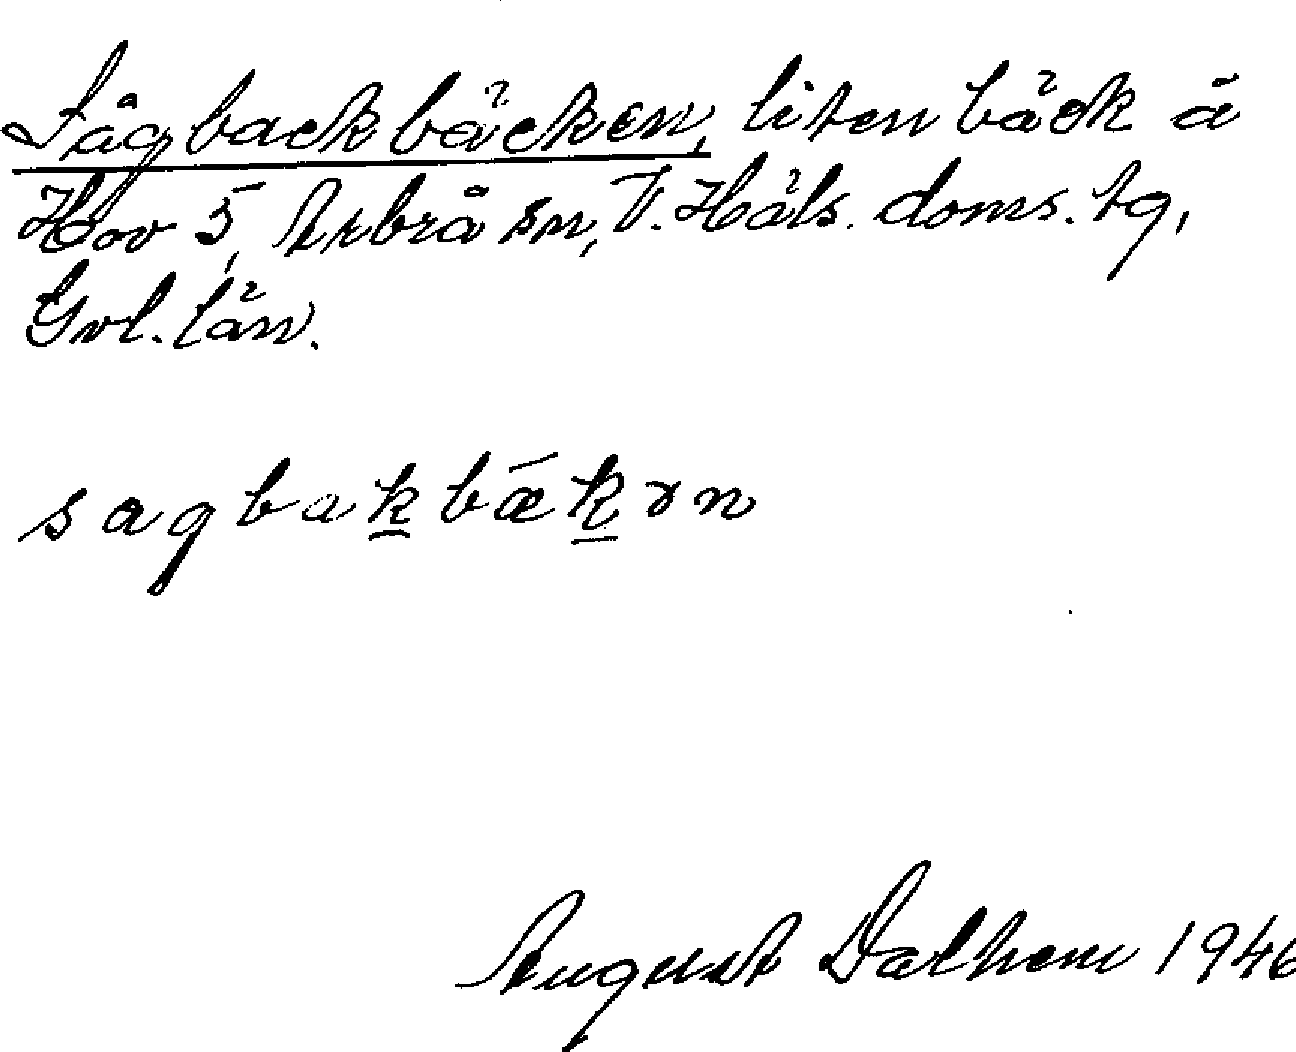 Sågbackbäcken, liten bäck å
Hov 5, Arbrå sn, V. Häls. doms. tg,
Gvl. län.
sagbakbǽkən
August Dalhem 1946